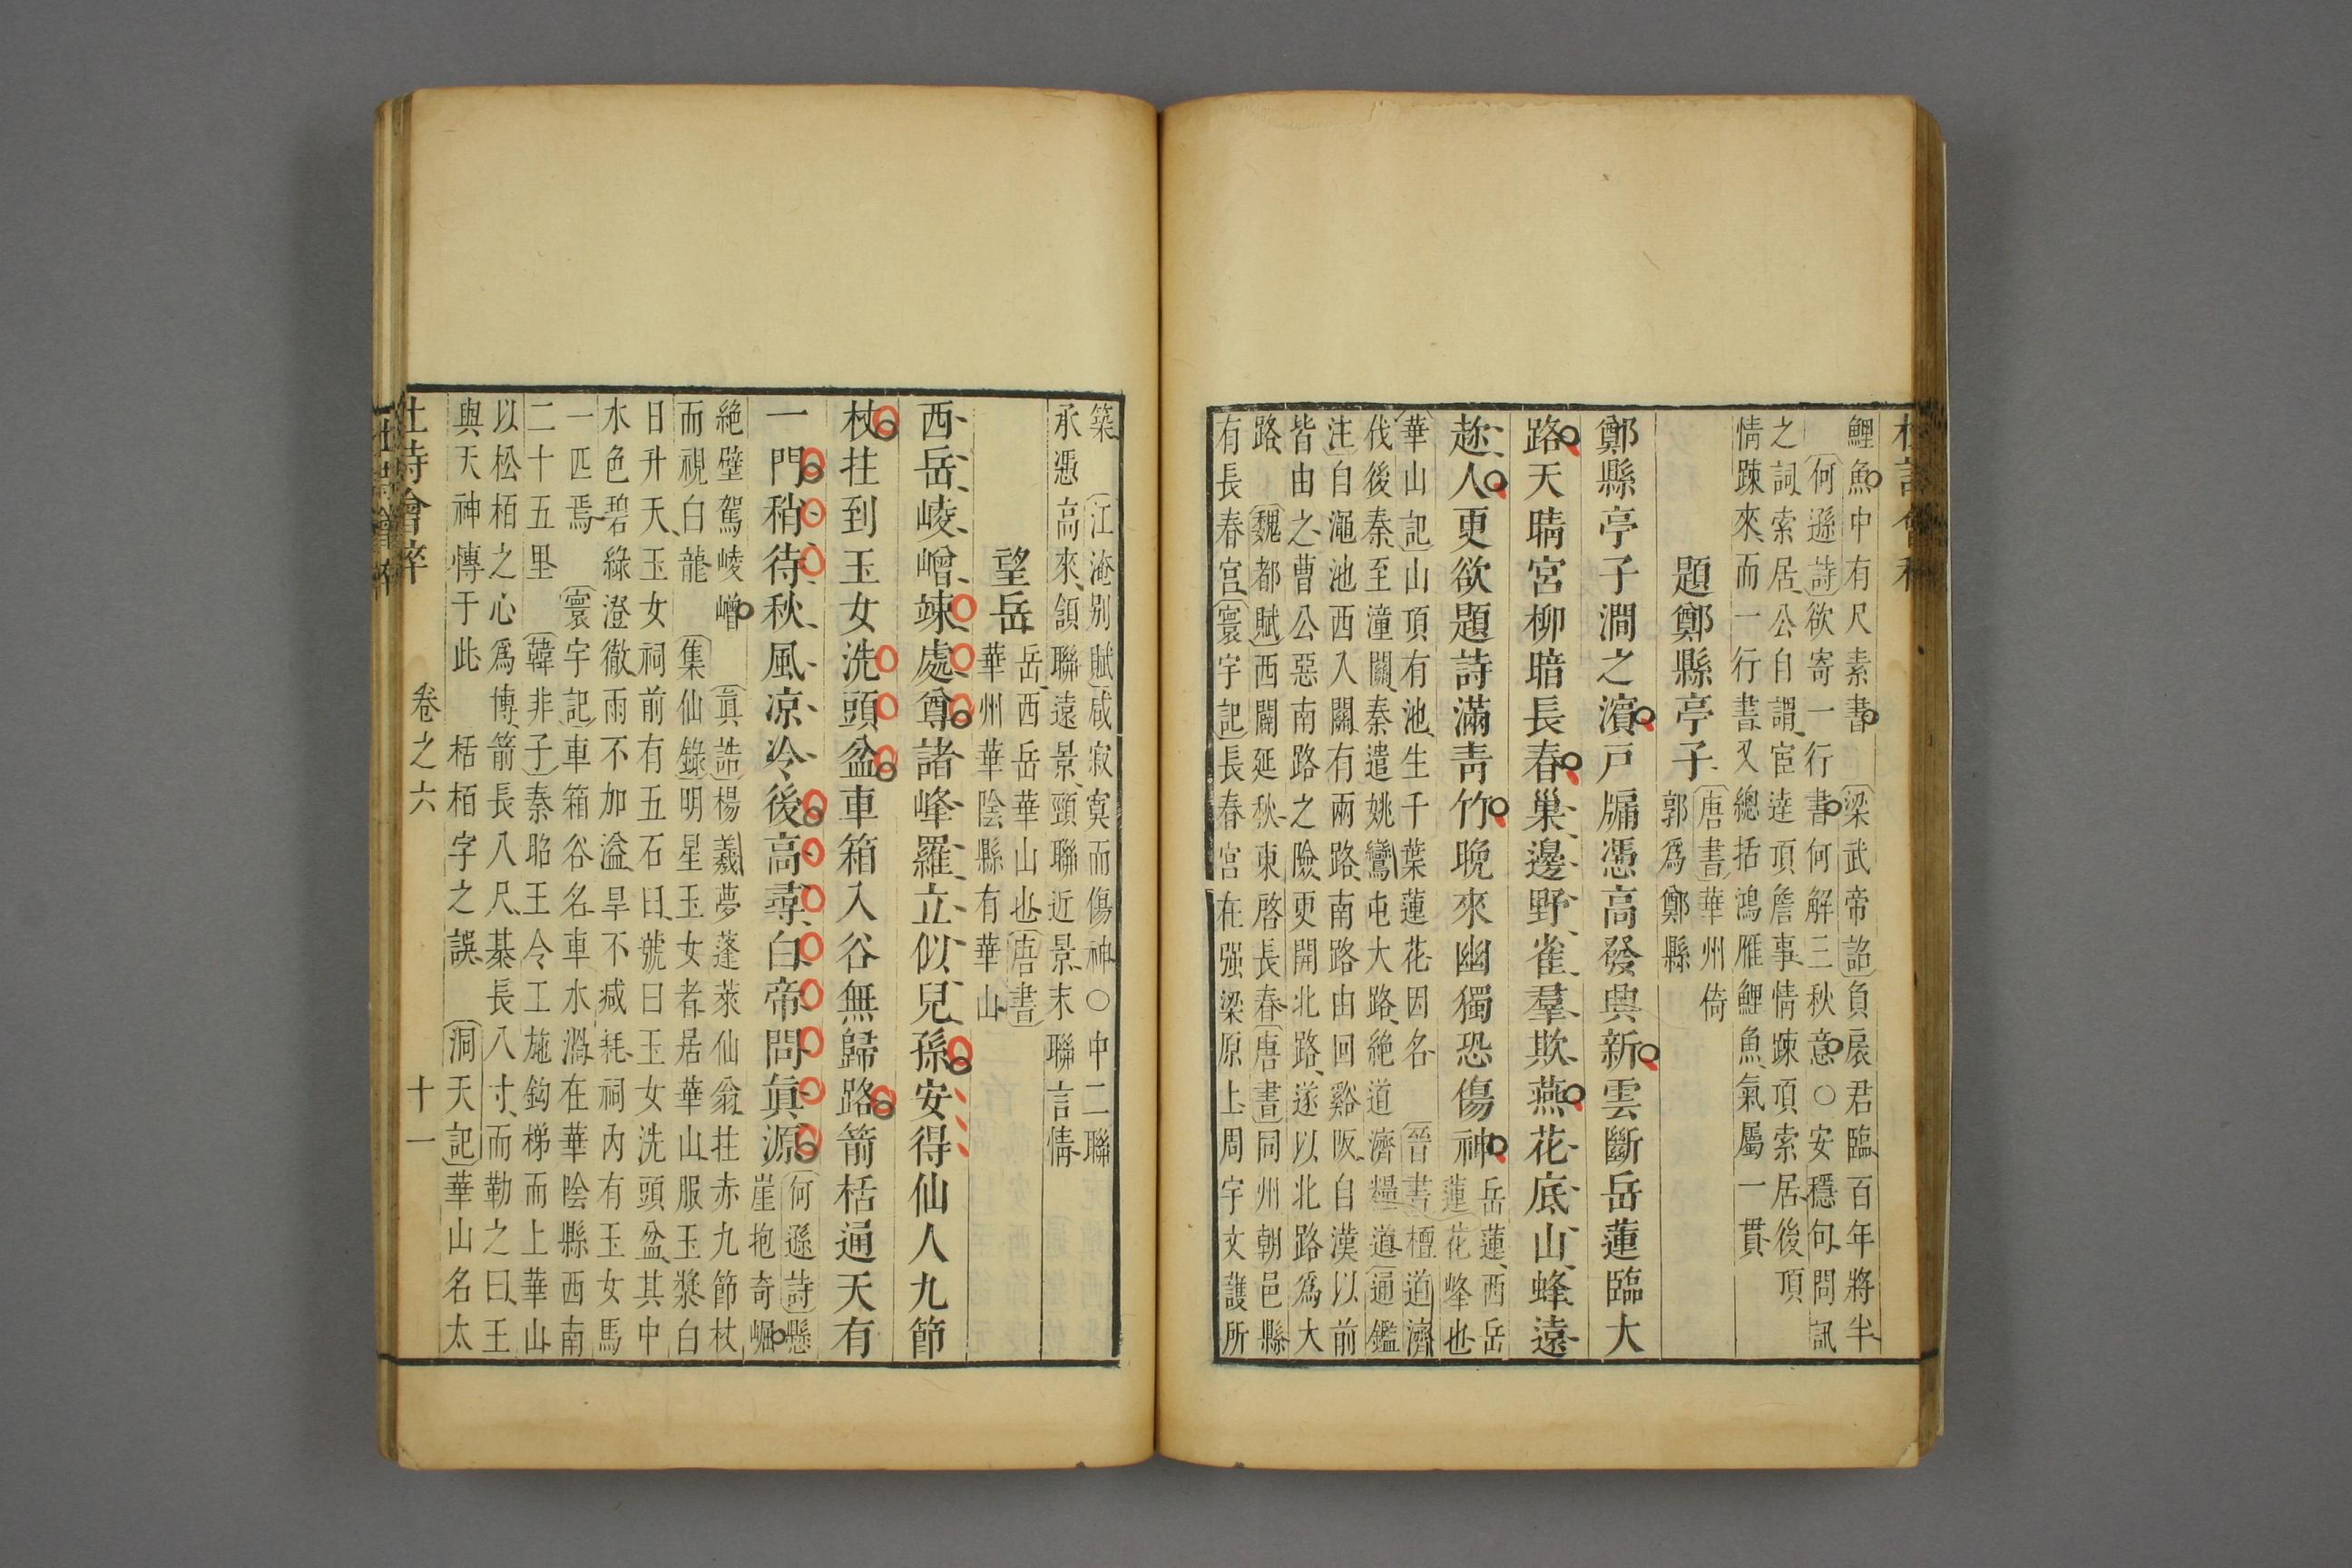 鯉魚中有尺素書　梁武帝詔負扆君臨百年將半
何遜詩欲寄一行書何解三秋意○安穩句問訊
之詞索居公自謂宦達頂詹事情踈頂索居後頂
情踈來而一行書又總括鴻雁鯉魚氣屬一貫
題鄭縣亭子
唐書華州倚
郭爲鄭縣
鄭縣亭子澗之濵戸牖憑高發興新雲斷岳蓮臨大
路天晴宮柳暗長春巢邊野雀羣欺燕花底山蜂遠
趂人更欲題詩滿靑竹晚來幽獨恐傷神
岳蓮西岳
蓮花峰也
華山記山頂有池生千葉蓮花因名　晉書檀道濟
伐後秦至潼關秦遣姚鸞屯大路絶道濟糧道通鑑
注自澠池西入關有兩路南路由回谿阪自漢以前
皆由之曹公惡南路之險更開北路遂以北路爲大
路　魏都賦西闢延秋東啓長春唐書同州朝邑縣
有長春宮寰宇記長春宮在强梁原上周宇文護所
築　江淹别賦咸寂寞而傷神○中二聯
承憑高來頷聯遠景頸聯近景末聯言情
望岳
岳西岳華山也唐書
華州華陰縣有華山
西岳崚嶒竦處尊諸峰羅立似兒孫安得仙人九節
杖拄到玉女洗頭盆車箱入谷無歸路箭栝通天有
一門稍待秋風凉冷後高尋白帝問眞源
何遜詩懸
崖抱奇崛
絶壁駕崚嶒　眞誥楊羲夢蓬萊仙翁拄赤九節杖
而視白龍　集仙錄明星玉女者居華山服玉漿白
日升天玉女祠前有五石臼號曰玉女洗頭盆其中
水色碧綠澄徹雨不加溢旱不減耗祠内有玉女馬
一匹焉　寰宇記車箱谷名車水渦在華陰縣西南
二十五里　韓非子秦昭王令工施鈎梯而上華山
以松栢之心爲博箭長八尺棊長八寸而勒之曰王
與天神博于此　栝栢字之誤　洞天記華山名太
杜詩會稡　卷之六　十一